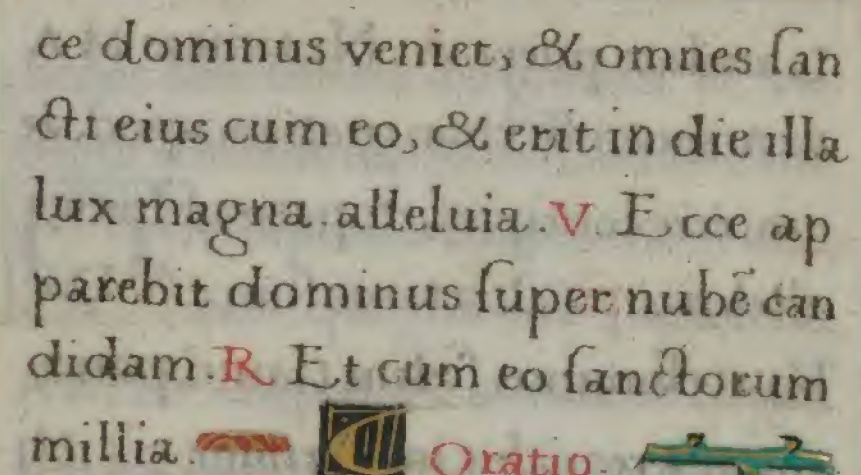 ce dominus veniet, & omnes ſan
cti eius cum eo, & erit in die illa
lux magna. alleluia. V. Ecce ap
parebit dominus ſuper nubē can
didam. R. Et cum eo ſanctorum
millia. Oratio.